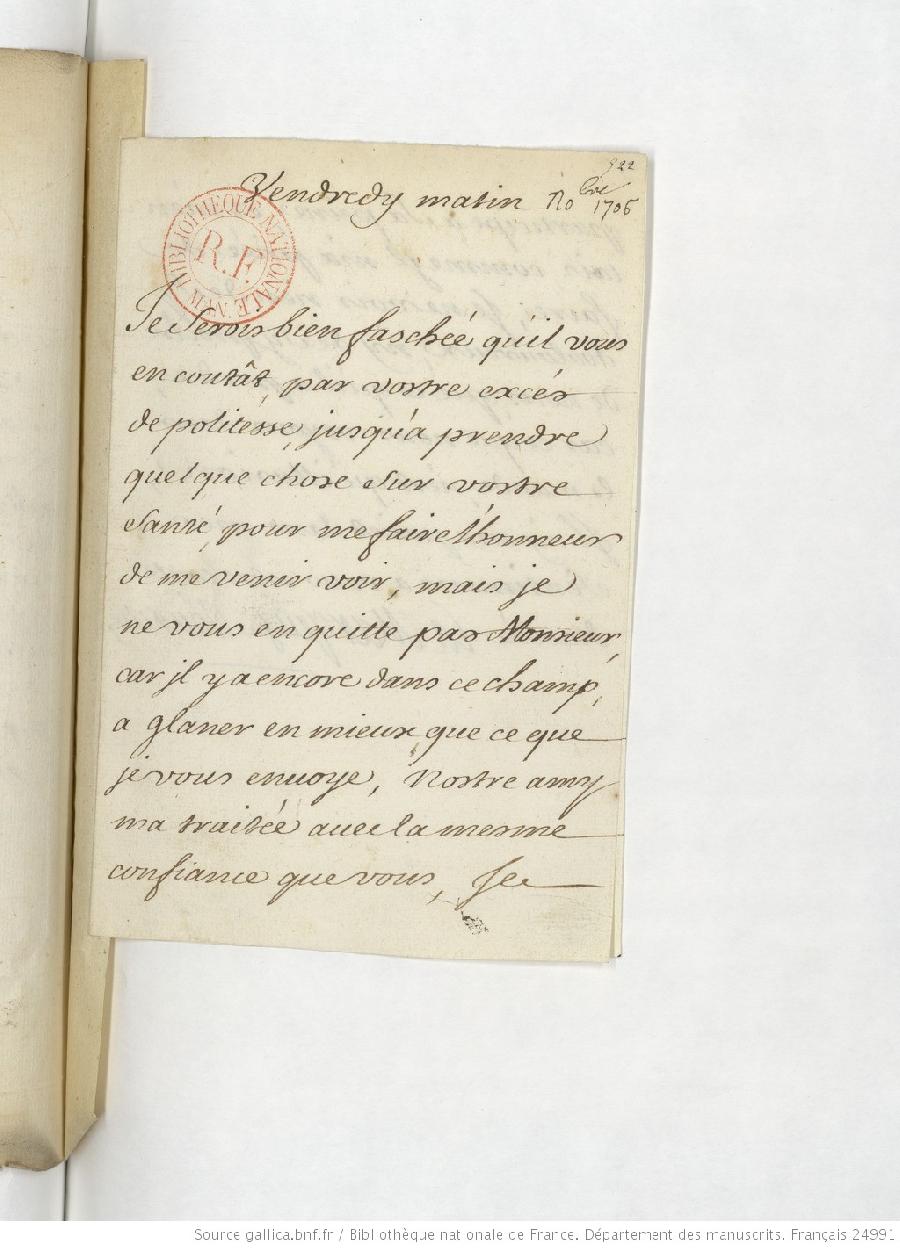 922
Vendredy matin No bre 1706
BIBLIOTHEQUE NATIONALE MSS
R.F.
Je Serois bien faschée qu'il vous
en coutât, par vostre excés
de politesse, jusqu'a prendre
quelque chose Sur vostre
Santé, pour me faire l'honneur
de me venir voir, mais je
ne vous en quitte pas Monsieur,
car jl y a encore dans ce champ,
a glaner en mieux, que ce que
je vous enuoye, Nostre amy
ma traitée auec la mesme
confiance que vous, Je
Source gallica.bnf.fr / Bibliothèque nationale de France. Département des manuscrits. Français 24991